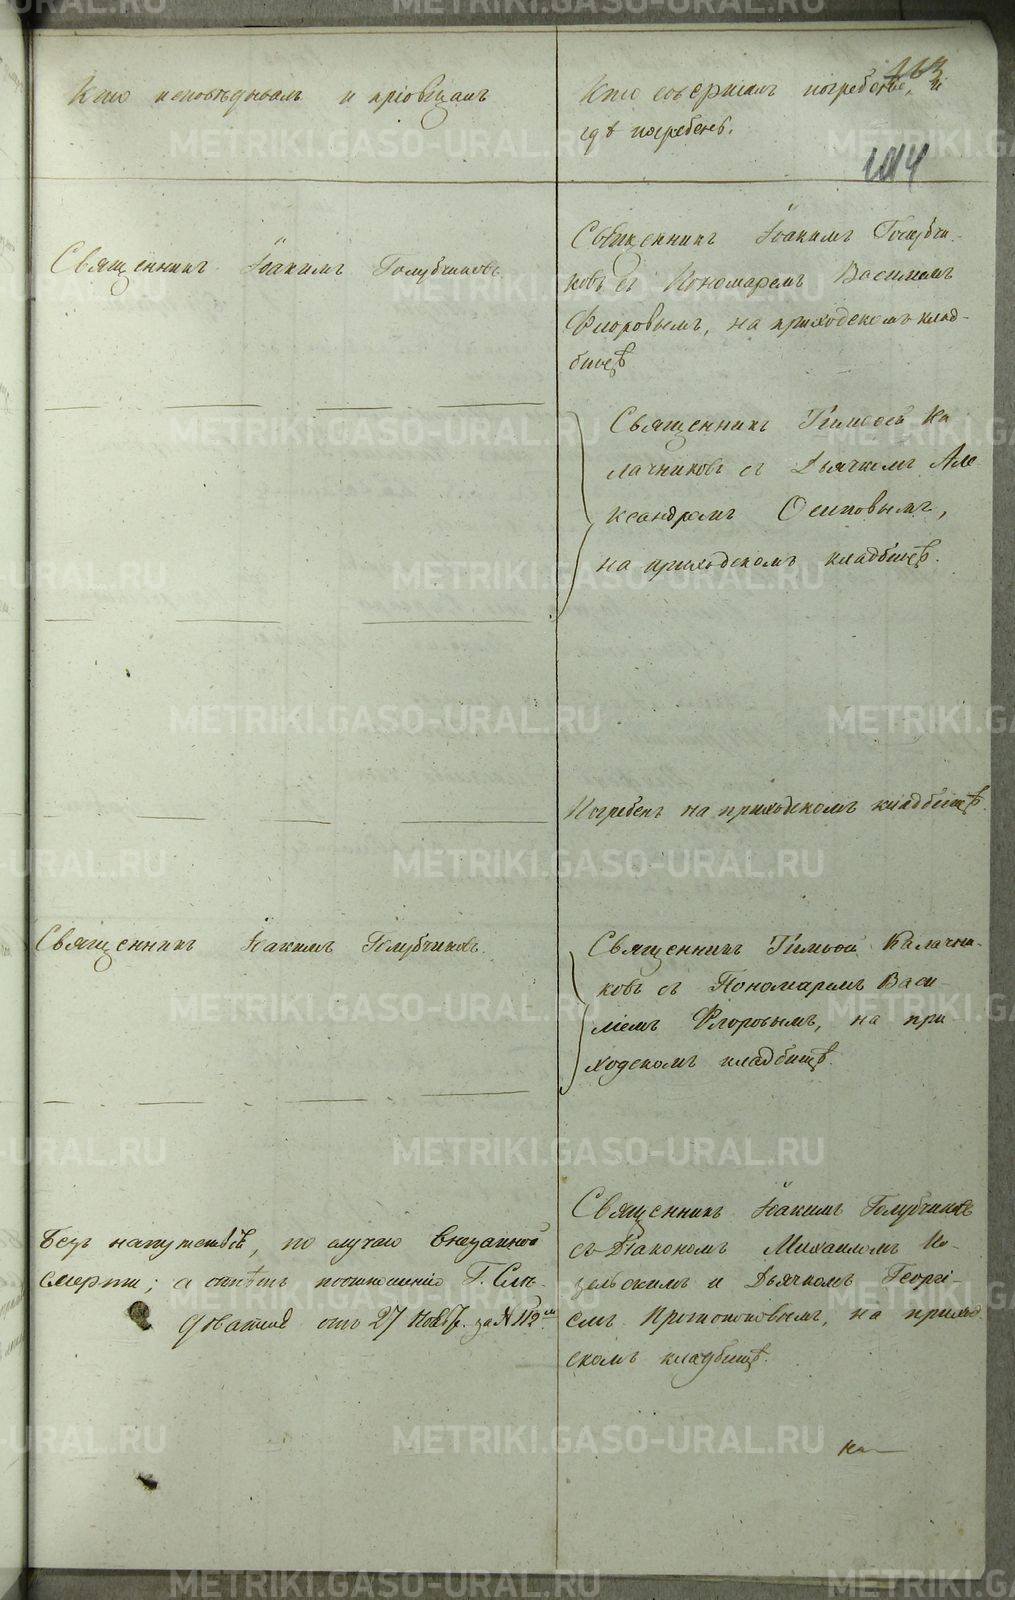 163
Кто исповѣдывалъ и пріобщалъ
Кто совершалъ погребеніе, и
гдѣ погребенъ.
Священникъ Іоакимъ Голубчиковъ
Священникъ Іоакимъ Голубчи-
ковъ съ Пономаремъ Васильемъ
Флоровымъ, на приходскомъ клад-
бищѣ
Священникъ Тимоѳей Ка
лачниковъ съ Дьячкомъ Але
ксандромъ Осиповымъ,
на приходскомъ кладбищѣ.
Погребенъ на приходскомъ кладбищѣ.
Священникъ Іоакимъ Голубчиковъ.
Священникъ Тимоѳей Калачни-
ковъ съ Пономаремъ Васи-
ліемъ Флоровымъ, на при-
ходскомъ кладбищѣ.
Безъ напутствія, по случаю внезапной
смерти; а отпѣтъ
отъ 27 Ноябр. за № 112
Священникъ Іоакимъ Голубчиковъ
съ Діакономъ Михаиломъ Ко-
зельскимъ и Дьячкомъ Георгі-
емъ Протопоповымъ, на приход
скомъ кладбищѣ.
METRIKI.GASO-URAL.RU